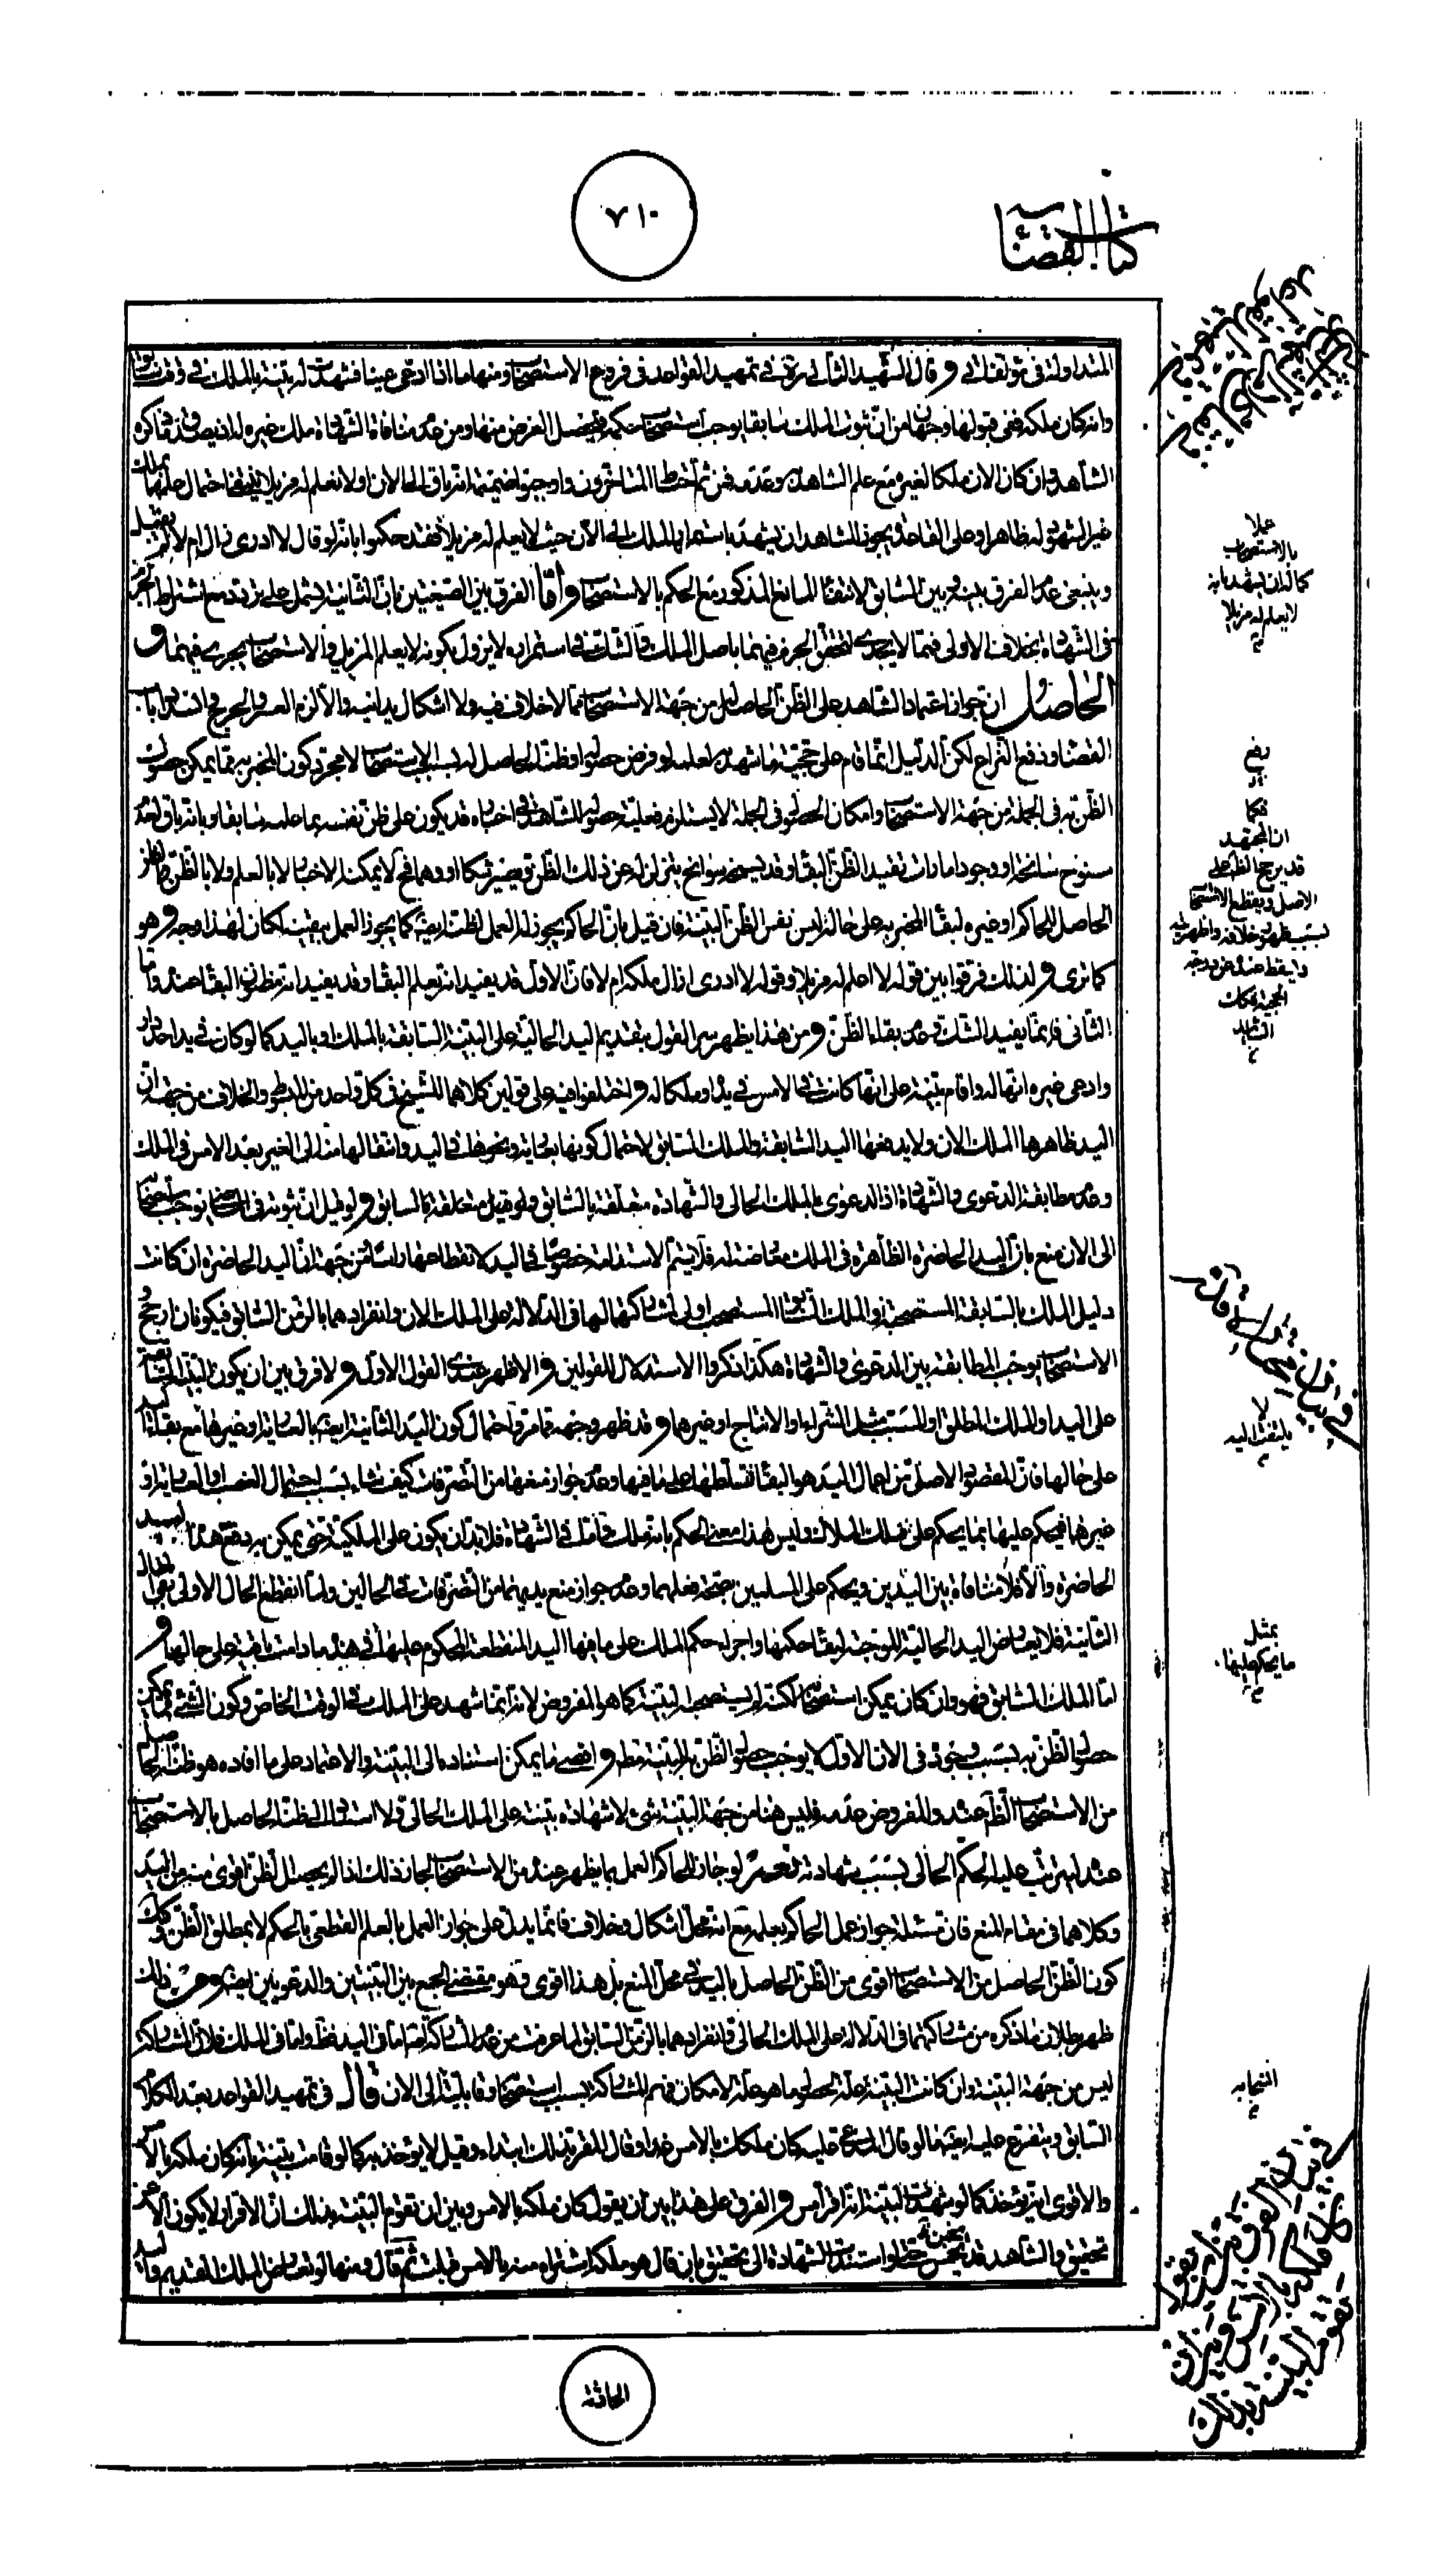 ٧١٠
كتاب القضاء
المتداولة في مؤلفاتي وقال الشهيد الثاني ره في تمهيد القواعد في فروع الاستصحاب ومنها ما اذا ادعى عينا فشهدت له بينة بالملك في وقت سابق
وانه كان ملكه ففي قبولها وجهان من ان ثبوت الملك سابقا يوجب استصحاب حكمه فيحصل الغرض منها ومن عدم منافاة الشهادة ملك غيره له لاقتضائه
الشاهد وان كان الان ملكا لغيره مع علم الشاهد به وعدمه فمن ثم احتاط المتأخرون واوجبوا ضميمة انه باق الى الان او لا نعلم له مزيلا
غير المشهود له ظاهرا وعلى القاعدة يجوز للشاهد ان يشهد باستمرار الملك الى الان حيث لا يعلم له مزيلا فقد حكموا بانه لو قال لا ادري زال ام لا لم يقبل
وينبغي عدم الفرق بينه وبين السابق لانتفاء المانع المذكور مع الحكم بالاستصحاب واما الفرق بين الصيغتين بان الثانية يشتمل على تردد مع اشتراط الجزم
في الشهادة بخلاف الاولى فمما لا يجدي لتحقق الجزم فيهما باصل الملك والشك في استمراره لا يزول بكونه لا يعلم المزيل والاستصحاب يجري فيهما و
الحاصل ان جواز اعتماد الشاهد على الظن الحاصل له من جهة الاستصحاب مما لا خلاف فيه ولا اشكال يدانيه والا لزم العسر والحرج وانسد ابواب
القضاء ورفع النزاع لكن الدليل انما قام على حجية ما شهد به لعلمه لو فرض حصوله او ظنه الحاصل له بسبب الاستصحاب لا مجرد كون المخبر به مما يمكن حصول
الظن به في الجملة من جهة الاستصحاب وامكان الحصول في الجملة لا يستلزم فعلية حصوله للشاهد في اخباره قد يكون على ظن نفسه بما علمه سابقا وبانه باق لعدم
سنوح سانحة او وجود امارات تفيد الظن البقاء وقد يسنح سوانح يتزلزل له عن ذلك الظن ويصير شكا او وهما فح لا يمكنه الاخبار لا بالعلم ولا بالظن والظن
الحاصل للحاكم او غيره لبقاء المخبر به على حاله ليس نفس الظن البينة فان قيل بان الحاكم يجوز له العمل بظنه ايضا كما يجوز العمل بيقينه لكان لهذا وجه وهو
كما ترى ولذلك فرقوا بين قوله لا اعلم له مزيلا وقوله لا ادري ازال ملكه ام لا فان الاول قد يفيد انه يعلم البقاء وقد يفيد انه مظنون البقاء عنده واما
الثاني فانما يفيد الشك وعدم بقاء الظن ومن هذا يظهر سر القول بتقديم اليد الحالية على البينة السابقة بالملك او باليد كما لو كان في يد احد دار
وادعى غيره انها له واقام بينة على انها كانت في الامس في يده او ملكا له واختلفوا فيه على قولين كلاهما للشيخ في كل واحد من المبسوط والخلاف من جهة ان
اليد ظاهرها الملك الان ولا يدفعها اليد السابقة والملك السابق لاحتمال كونها بعارية ونحوها في اليد وانتقالها منه الى الغير بعد الامس في الملك
وعدم مطابقة الدعوى والشهادة اذ الدعوى بالملك الحالي والشهادة متعلقة بالسابق ولو قيل ان ثبوته في الماضي يوجب استصحابه
الى الان منع بان اليد الحاضرة الظاهرة في الملك معارضة له فلا يتم الاستدامة خصوصا في اليد لانقطاعها راسا ومن جهة ان اليد الحاضرة ان كانت
دليل الملك بالسابقة المستصحبة والملك السابق المستصحب اولى لمشاركتهما لها في الدلالة على الملك الان وانفرادهما بالزمن السابق فيكونان ارجح
الاستصحاب يوجب المطابقة بين الدعوى والشهادة هكذا ذكروا الاستدلال للقولين والاظهر عندي القول الاول ولا فرق بين ان يكون البينة السابقة
على اليد او الملك المطلق او المسبب مثل الشراء او الانتاج او غيرها وقد ظهر وجهه مما مر واحتمال كون اليد الثانية ايضا بالعارية او غيرها مع بقاء اليد
على حالها فان المقصود الاصلي من اعمال اليد هو ابقاء تسلطها على ما فيها وعدم جواز منعها من التصرفات كيف شاء بسبب احتمال الغصب او العارية او
غيرها فيحكم عليها بما يحكم على ملك الملاك وليس هذا معنى الحكم بانه ملك وتامل في الشهادة فلا بد ان يكون على الملكية حتى يمكن به رفع هذه اليد
الحاضرة والا فلا منافاة بين اليدين ويحكم على المسلمين بصحة فعلهما وعدم جواز منع يديهما من التصرفات في الحالين ولما انقطع الحال الاولى بقي الحال
الثانية فلا يعارض اليد الحالية الموجبة لبقاء حكمها واجراء حكم الملك على ما فيها اليد المنقطعة المحكوم عليها في هذه ما دامت باقية على حالها و
اما الملك السابق فهو وان كان يمكن استصحابه لكنه لم يستصحبه البينة كما هو المفروض لانه انما شهد على الملك في الوقت الخاص وكون الشيء مما يمكن
حصول الظن به بسبب وجوده في الان الاول لا يوجب حصول الظن به للبينة مط واقصى ما يمكن استناده الى البينة والاعتماد على ما افاده هو ظنه الحاصل
من الاستصحاب الظاهر عنده والمفروض عدمه فليس هنا من جهة البينة شيء لا شهادة بينة على الملك الحالي ولا استناد الى ظنه الحاصل بالاستصحاب
عنده ليترتب عليه الحكم الحالي بسبب شهادته نعم لو جاز للحاكم العمل بما يظهر عنده من الاستصحاب لجاز ذلك اذا لم يحصل الظن اقوى منه من اليد
وكلاهما في مقام المنع فان مسئلة جواز عمل الحاكم بعلمه مع انه محل اشكال وخلاف فانما يدل على جواز العمل بالعلم القطعي بالحكم لا بمطلق الظن وكذلك
كون الظن الحاصل من الاستصحاب اقوى من الظن الحاصل باليد في محل المنع بل هذا اقوى وهو مقتضى الجمع بين البينتين والدعويين ايضا ومن ذلك
ظهر بطلان ما ذكره من مشاركتهما في الدلالة على الملك الحالي وانفرادهما بالزمن السابق لما عرفت من عدم المشاركة اما في اليد فظ واما في الملك فلان المشاركة
ليس من جهة البينة وان كانت البينة علة لحصول ما هو علة لامكان فهم المشاركة بسبب استصحاب وقابلية الى الان قال في تمهيد القواعد بعد الكلام
السابق ويتفرع عليه ايضا ما لو قال المدعى عليه كان ملكك بالامس غيره او قال المقر بذلك ابتداء وقيل لا يؤخذ به كما لو قامت بينة بانه كان ملكه بالامس
والاقوى انه يؤخذ كما لو شهدت البينة انه اقر امس والفرق على هذا بين ان يقول كان ملكه بالامس وبين ان تقوم البينة بذلك ان الاقرار لا يكون الا عن
تحقيق والشاهد قد يخمن حتى لو استندت الشهادة الى تحقيق بان قال هو ملكه اشتراه منه بالامس قبلت ثم قال ومنها لو تعارض الملك القديم واليد
عملا
بالاستصحاب
كما له ان يشهد بانه
لا يعلم له مزيلا
فكما
ان المجتهد
قد يرجح الظاهر على
الاصل ويقطع الاستصحاب
بسبب ظهور خلافه
الحجية فكذلك
الشاهد
بمثل
ما يحكم عليها
الحادثة